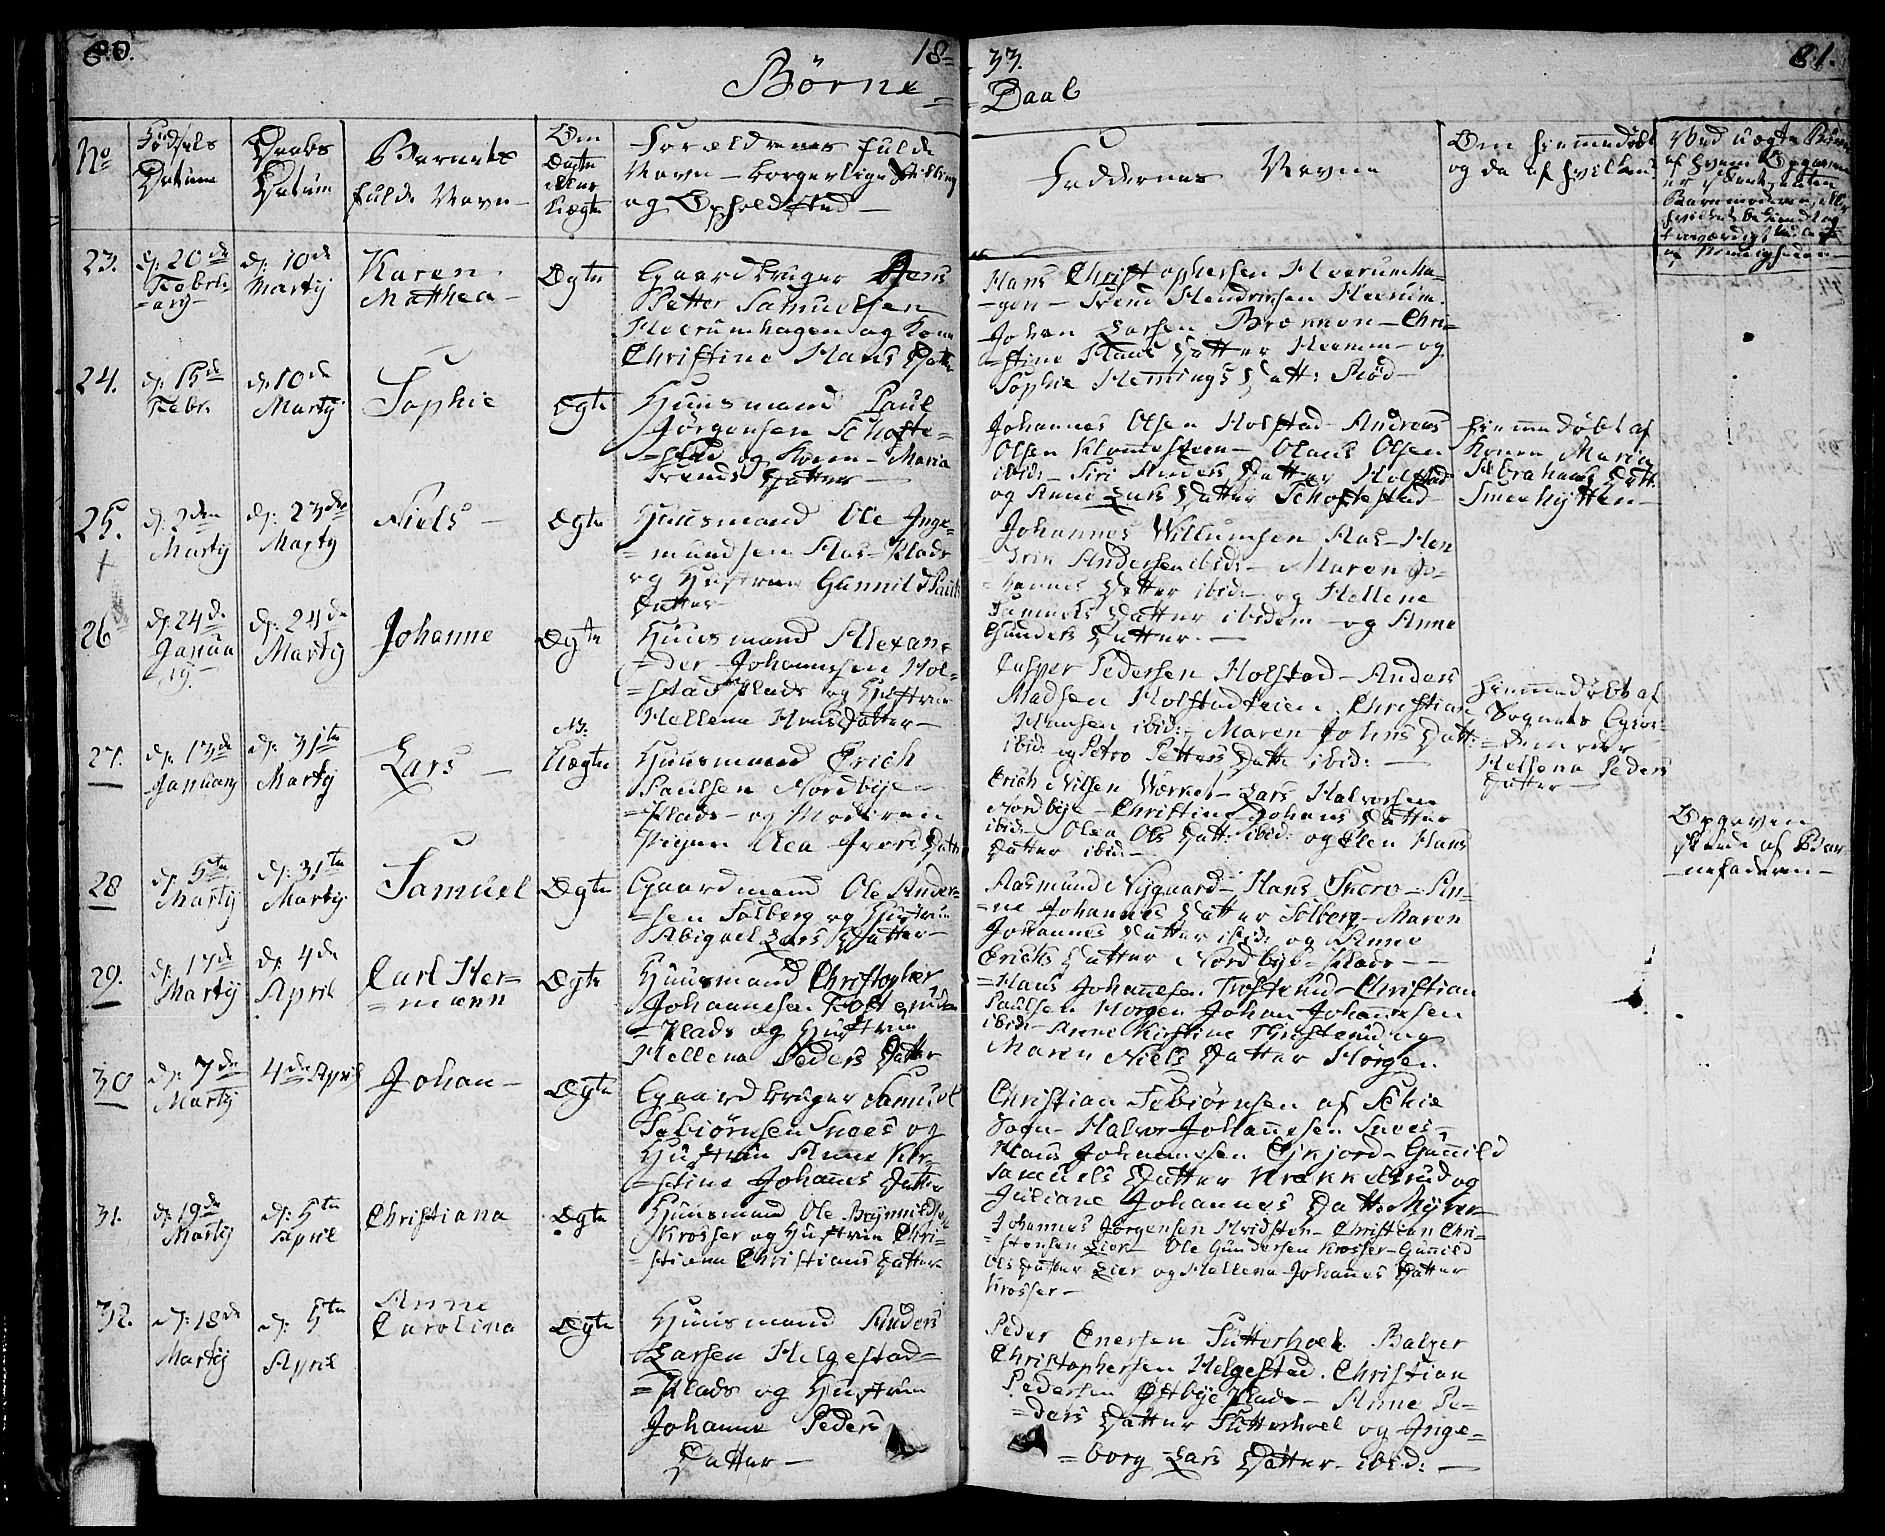 80.
18
33.
81.
Börne
Daab
No
Födsels
Datum
Daabs
Datum
Barnets
fulde Navn
Om
Ægte
eller
Uægte
Forældrenes fulde
Navn - borgerlige Stilling
og Opholdsted
Faddernes Navne
Om hiemmedöbt
og da af hvilken
23.
d: 20de
Febru-
ary
d: 10de
Martij
Karen
Matthea
Ægte
Gaardbruger Jens
Petter Samuelsen
Heerumhagen og Kone
Christine Hans Datter
Hans Christophersen Heerumha-
-gen - Svend Hendrichsen Heerum
Johan Larsen Brönnen - Chri-
=stine Hans Datter Heerum - og
Sophie Hemings Datt: Röd
24.
d: 15de
Febr.
d: 10de
Martij
Sophie
Ægte
Huusmand Paul
Jörgensen Schofte-
=stad og Konen - Maria
Svends Datter
Johannes Olsen Holstad - Andreas
Olsen Klommesteen - Olaus Olsen
ibid: - Siri Anders Datter Holstad
og Anne Lars Datter Schoftestad
hiemmedöbt af
Konen Maria
Abrahams Datt:
Smedhytten
25.
+
d: 2den
Martij
d: 23de
Martij
Niels
Ægte
Huusmand Ole Inge-
=mundsen Aas - Plads
og Hustrue Gunnild Pauls
Datter
Johannes Willumsen Aas - Hen
Andersen ibid: - Maren Jo-
=hannes Datter ibid: - og Hellene
Samuels Datter ibidem - og Anne
Gunders Datter. -
26
d: 24de
Janua
ry.
d: 24de
Martij
Johanne
Ægte
Huusmand Alexan-
=der Johannesen Hol-
=stad Plads og Hustrue
Hellena Hans Datter
Casper Pedersen Holstad - Anders
Madsen Holstadteien. Christian
Hansen ibid: - Maren Johns Datt:
ibid: og Petro Petters Datte ibid:
hiemmedöbt af
Sognets Gjor-
=demoder
Hellena Peders
Datter
27.
d: 13de
January
d: 31te
Martij
Lars
N:
Uægte
Huusmand Erich
Paulsen Nordbye-
=Plads - og Moderen
Pigen Olea Ivers Datt:
Erich Nilsen - Lars Halvorsen
Nordbye - Christine Johans Datter
ibid: - Olea Ols Datt: ibid: og Elen Hans
Datter ibid: -
Opgaven
skede af Bar-
nefaderen
28
d: 5te
Martij
d: 31te
Martij
Samuel
Ægte
Gaardmand Ole Ander-
=sen Solberg og Hustrue
Abigael Lars Datter
Aasmund Nygaard - Hans Skoro - An-
=ne Johannes Datter Solberg - Maren
Johannes Datter ibid: og Anne
Erichs Datter Nordbye - Plads
29.
d: 17de
Martij
d: 4de
April
Carl Her-
=mann
Ægte
Huusmand Christopher
Johannesen Tostrud-
=Plads og Hustrue
Hellena Peders Datter
Hans Johannesen Trosterud - Christian
Paulsen Horgen Johan Johannesen
ibid: - Anne Kirstine Trosterud og
Maren Niels Datter Horgen
30
d: 7de
Martij
4de April
Johan
Ægte
Gaardbruger Samuel
Tebiörnsen Snoes og
Hustrue Anne Kir-
=stine Johannes Datter
Christian Tebiörnsen af Schie
Sogn - Halvor Johannesen Snoes -
Hans Johannesen - Gunnild
Samuels Datter Krekkelsrud og
Juliane Johannes Datt: Myrer
31.
d: 19de
Martij
d: 5te
April
Christiana
Ægte
Huusmand Ole
Krosser og Hustrue Chri-
=stiana Christians Datter
Johannes Jörgensen Hvidsten - Christian Chri-
=stensen Lier - Ole Gundersen Krosser - Gunnild
Ols Datter Lier og Hellena Johannes Datter
Krosser -
32.
d: 18de
Martij
d: 5te
April
Anne
Carolina
Ægte
Huusmand Anders
Larsen Helgestad-
=Plads og Hustrue
Johanne Peders
Datter -
Peder Enersen Sutterhoel. Balzer
Christophersen Helgestad. Christian
Pedersen Östbye Plads - Anne Pe-
=ders Datter Sutterhoel og Inge-
=borg Lars Datter ibid: -